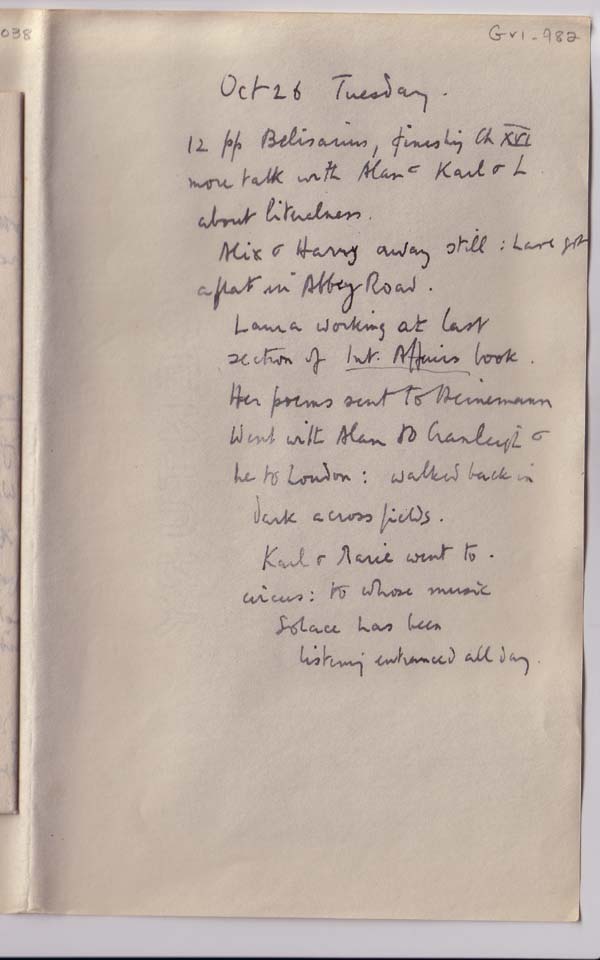 038
Gv1-982
Oct 26 Tuesday.
12 pp Belisarius, finishing Ch XVI
more talk with Alan & Karl & L
about literalness.
Alix & Harry away still: have got
a flat in Abbey Road.
Laura working at last
section of Int. Affairs book.
Her poems sent to Heinemann
Went with Alan to Cranleigh &
he to London: walked back in
dark across fields.
Karl & Marie went to
circus: to whose music
Solace has been
listening entranced all day.